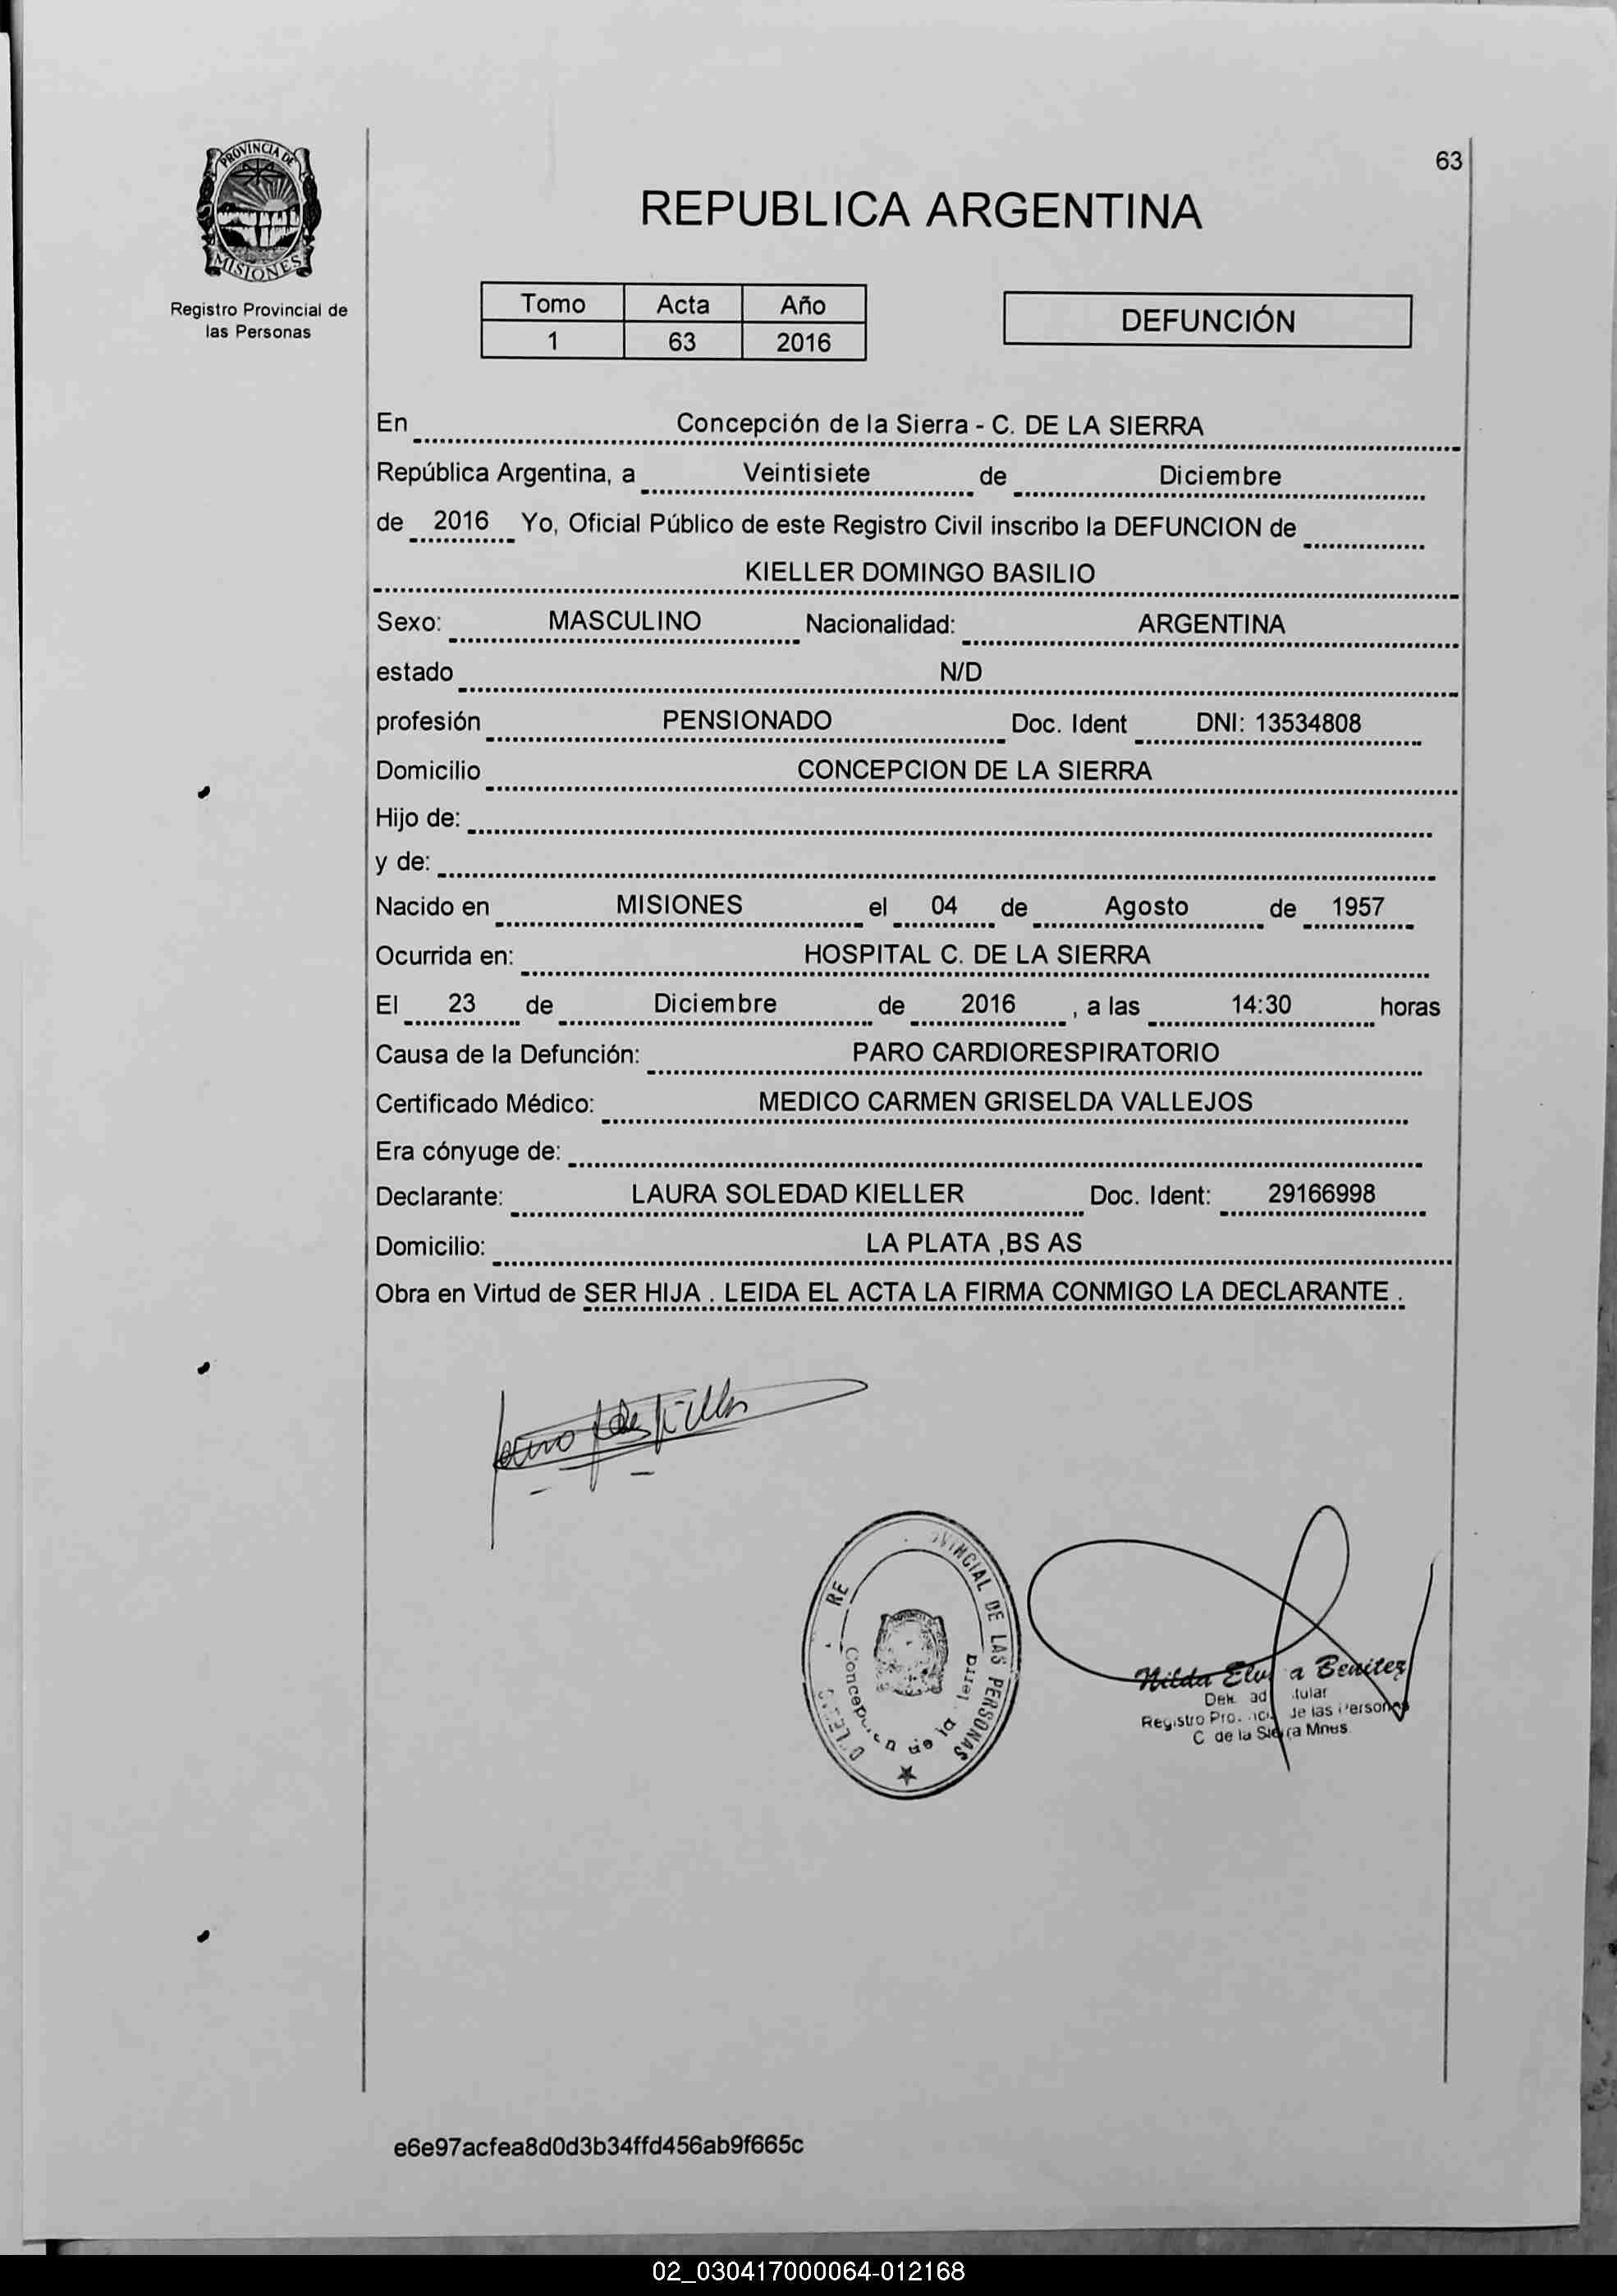 63
PROVINCIA DE
MISIONES
Registro Provincial de
las Personas
REPUBLICA ARGENTINA
Tomo Acta Año
1 63 2016
DEFUNCIÓN
En Concepción de la Sierra - C. DE LA SIERRA
República Argentina, a Veintisiete de Diciembre
de 2016 Yo, Oficial Público de este Registro Civil inscribo la DEFUNCION de
KIELLER DOMINGO BASILIO
Sexo: MASCULINO Nacionalidad: ARGENTINA
estado N/D
profesión PENSIONADO Doc. Ident DNI: 13534808
Domicilio CONCEPCION DE LA SIERRA
Hijo de:
y de:
Nacido en MISIONES el 04 de Agosto de 1957
Ocurrida en: HOSPITAL C. DE LA SIERRA
El 23 de Diciembre de 2016 , a las 14:30 horas
Causa de la Defunción: PARO CARDIORESPIRATORIO
Certificado Médico: MEDICO CARMEN GRISELDA VALLEJOS
Era cónyuge de:
Declarante: LAURA SOLEDAD KIELLER Doc. Ident: 29166998
Domicilio: LA PLATA ,BS AS
Obra en Virtud de SER HIJA . LEIDA EL ACTA LA FIRMA CONMIGO LA DECLARANTE .
DE LAS PERSONAS
de la
Nilda Benitez
Registro de las Personas
C de la Sierra Mnes
e6e97acfea8d0d3b34ffd456ab9f665c
02_030417000064-012168